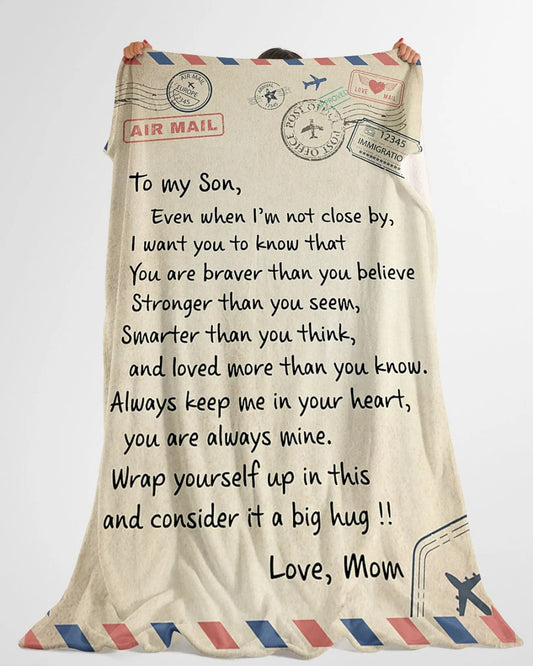 AIR MAIL
EUROPE
12345
ARRIVAL
12345
APPROVED
LOVE MAIL
POST OFFICE POST OFFICE
12345
IMMIGRATIO
AIR MAIL
To my Son,
Even when I'm not close by,
I want you to know that
You are braver than you believe
Stronger than you seem,
Smarter than you think,
and loved more than you know.
Always keep me in your heart,
you are always mine.
Wrap yourself up in this
and consider it a big hug !!
Love, Mom